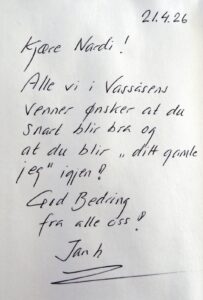 21.4.26
Kjære Nardi!
Alle vi i Vassåsens
Venner ønsker at du
snart blir bra og
at du blir „ditt gamle
jeg" igjen!
God Bedring
fra alle oss!
Jan h